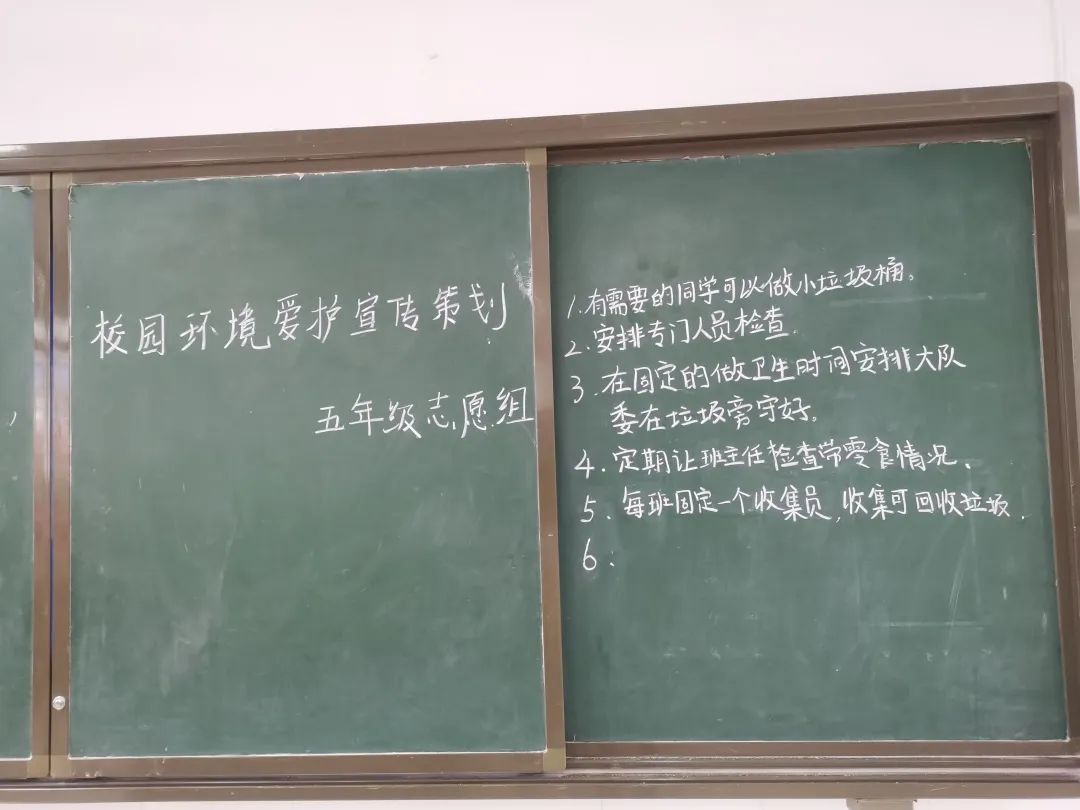 校园环境爱护宣传策划
五年级志愿组
1.有需要的同学可以做小垃圾桶。
2.安排专门人员检查.
3.在固定的做卫生时间安排大队
委在垃圾旁守好。
4.定期让班主任检查带零食情况、
5、每班固定一个收集员,收集可回收垃圾.
6、